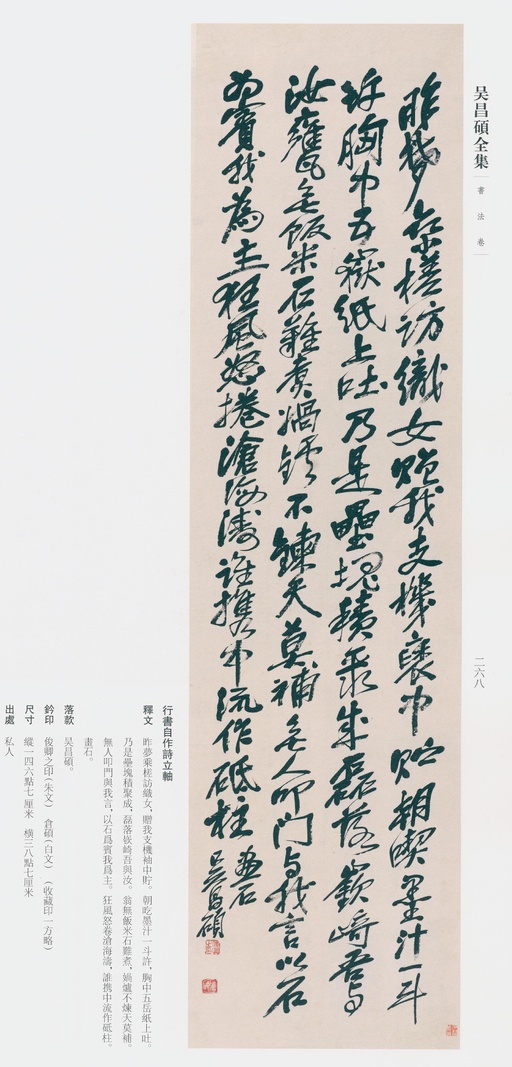 吴昌碩全集
書法卷
二六八
昨夢乘槎訪織女贈我支機褎中貯朝喫墨汁一斗
許胸中五嶽紙上吐乃是壘塊積聚成磊落嶔崎吾與
汝甕無飯米石難煮媧鑪不鍊天莫補無人叩門與我言以石
為賓我為主狂風怒捲滄海濤誰攜中流作砥柱
畫石
吳昌碩
行書自作詩立軸
釋文 昨夢乘槎訪織女，贈我支機袖中貯。朝吃墨汁一斗許，胸中五岳紙上吐。
乃是壘塊積聚成，磊落嵌崎吾與汝。翁無飯米石難煮，媧爐不煉天莫補。
無人叩門與我言，以石爲賓我爲主。狂風怒卷滄海濤，誰携中流作砥柱。
畫石。
落款 吴昌碩。
鈐印 俊卿之印（朱文） 倉碩（白文） （收藏印一方略）
尺寸 縱一四六點七厘米 橫三八點七厘米
出處 私人